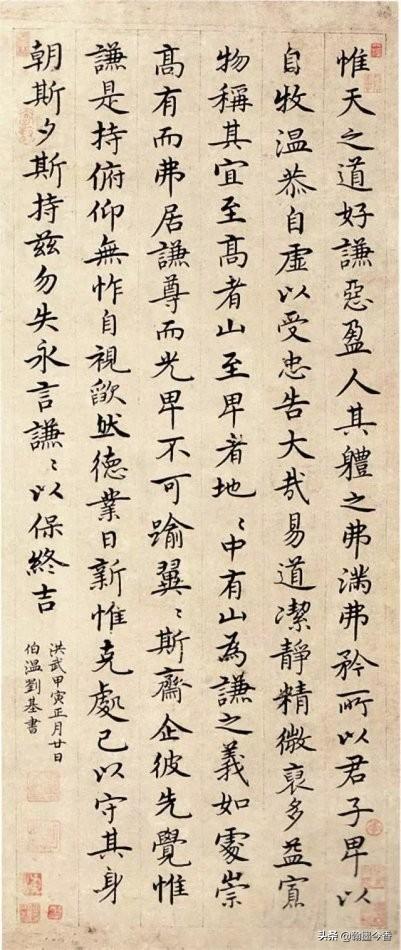 惟天之道好謙惡盈人其體之弗滿弗矜所以君子卑以
自牧温恭自虛以受忠告大哉易道潔靜精微裒多益寡
物稱其宜至髙者山至卑者地〻中有山為謙之義如處崇
髙有而弗居謙尊而光卑不可踰翼〻斯齋企彼先覺惟
謙是持俯仰無怍自視欿然德業日新惟克處己以守其身
朝斯夕斯持兹勿失永言謙〻以保終吉
洪武甲寅正月廿日
伯温劉基書
头条 @翰墨今香